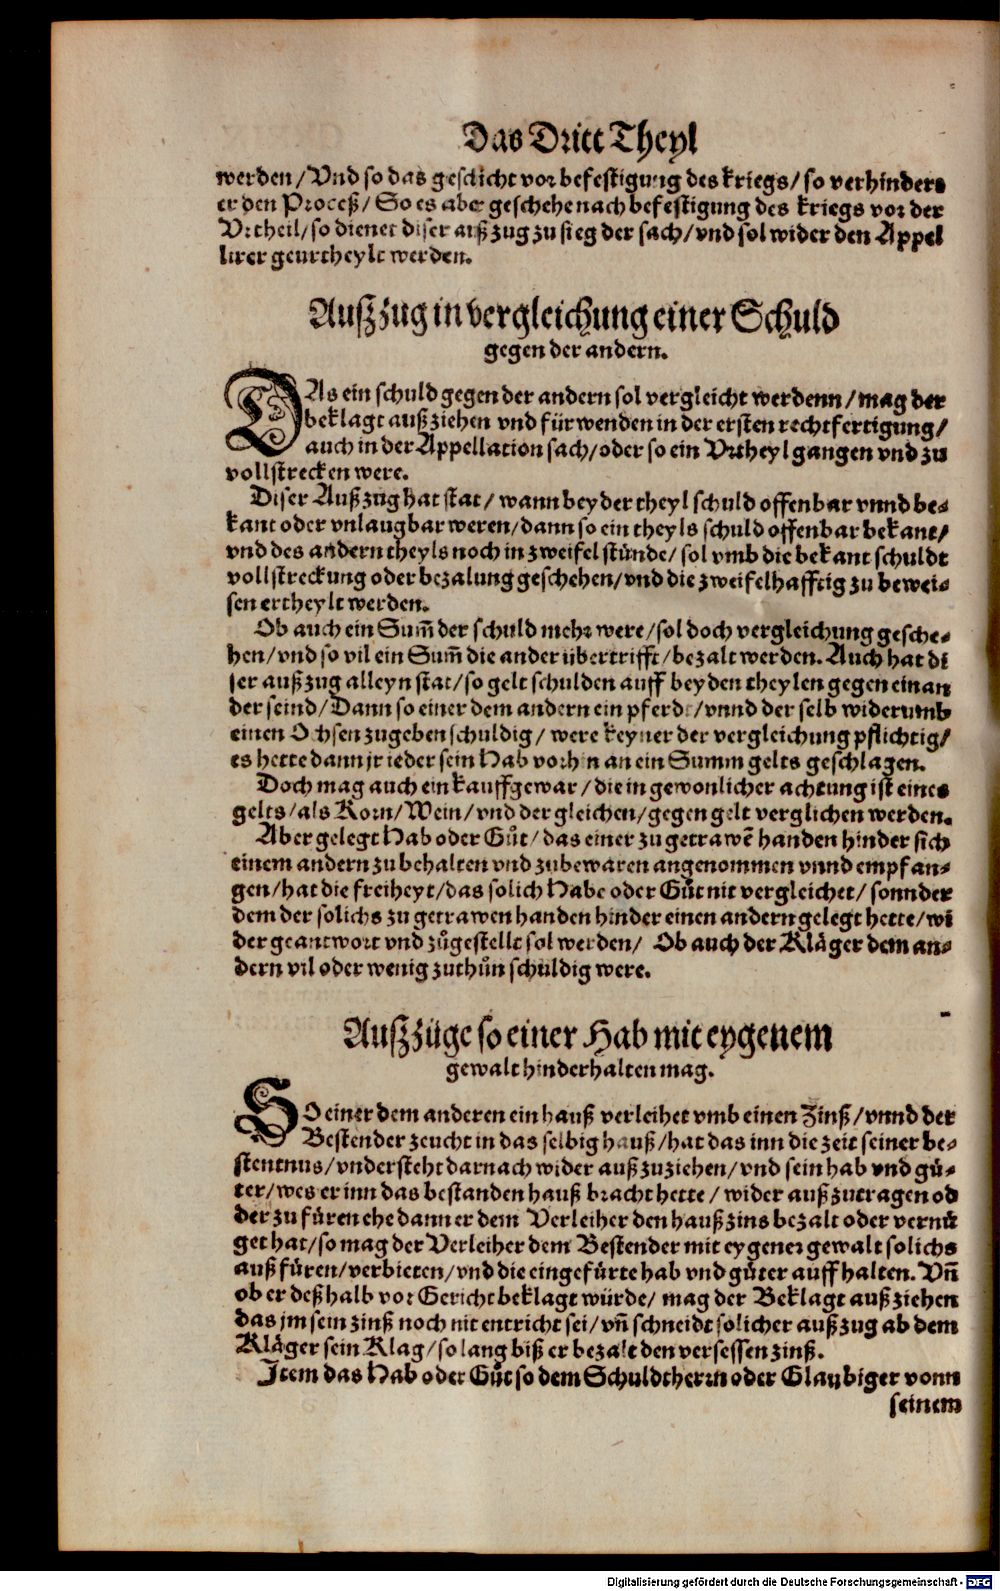 Das Dritt Theyl
werden/ Vnd so das geschicht vor befestigung des kriegs/ so verhindere
er den Proceß/ So es aber geschehe nach befestigung des kriegs vor der
Vrtheil/ so dienet diser außzug zu sieg der sach/ vnd sol wider den Appel
lirer geurtheylt werden.
Außzug in vergleichung einer Schuld
gegen der andern.
DAs ein schuld gegen der andern sol vergleicht werdenn/ mag der
beklagt außziehen vnd fürwenden in der ersten rechtfertigung/
auch in der Appellation sach/ oder so ein Vrtheyl gangen vnd zu
vollstrecken were.
Diser Außzug hat stat/ wann beyder theyl schuld offenbar vnnd be-
kant oder vnlaugbar weren/ dann so ein theyls schuld offenbar bekant/
vnd des andern theyls noch in zweifel stünde/ sol vmb die bekant schuldt
vollstreckung oder bezalung geschehen/ vnd die zweifelhafftig zu bewei-
sen ertheylt werden.
Ob auch ein Sum̃ der schuld mehr were/ sol doch vergleichung gesche-
hen/ vnd so vil ein Sum̃ die ander übertrifft/ bezalt werden. Auch hat di
ser außzug alleyn stat/ so gelt schulden auff beyden theylen gegen einan
der seind/ Dann so einer dem andern ein pferdt/ vnnd der selb widerumb
einen Ochsen zugeben schuldig/ were keyner der vergleichung pflichtig/
es hette dann jr ieder sein Hab vorhin an ein Summ gelts geschlagen.
Doch mag auch ein kauffgewar/ die in gewonlicher achtung ist eines
gelts/ als Korn/ Wein/ vnd der gleichen/ gegen gelt verglichen werden.
Aber gelegt Hab oder Gůt/ das einer zu getrawẽ handen hinder sich
einem andern zu behalten vnd zubewaren angenommen vnnd empfan-
gen/ hat die freiheyt/ das solich Habe oder Gůt nit vergleichet/ sonnder
dem der solichs zu getrawen handen hinder einen andern gelegt hette/ wi
der geantwort vnd zůgestellt sol werden/ Ob auch der Kläger dem an-
dern vil oder wenig zuthůn schuldig were.
Außzüge so einer Hab mit eygenem
gewalt hinderhalten mag.
SO einer dem anderen ein hauß verleihet vmb einen Zinß/ vnnd der
Bestender zeucht in das selbig hauß/ hat das inn die zeit seiner be-
stentnus/ vndersteht darnach wider außzuziehen/ vnd sein hab vnd gü-
ter/ wes er inn das bestanden hauß bracht hette/ wider außzutragen od
der zu füren ehe dann er dem Verleiher den haußzins bezalt oder vernü
get hat/ so mag der Verleiher dem Bestender mit eygener gewalt solichs
außfüren/ verbieten/ vnd die eingefürte hab vnd güter auffhalten. Vñ
ob er deßhalb vor Gericht beklagt würde/ mag der Beklagt außziehen
das jm sein zinß noch nit entricht sei/ vñ schneidt solicher außzug ab dem
Kläger sein Klag/ so lang biß er bezalt den versessen zinß.
Item das Hab oder Gůt so dem Schuldtherrn oder Glaubiger vonn
seinem
Digitalisierung gefördert durch die Deutsche Forschungsgemeinschaft - DFG